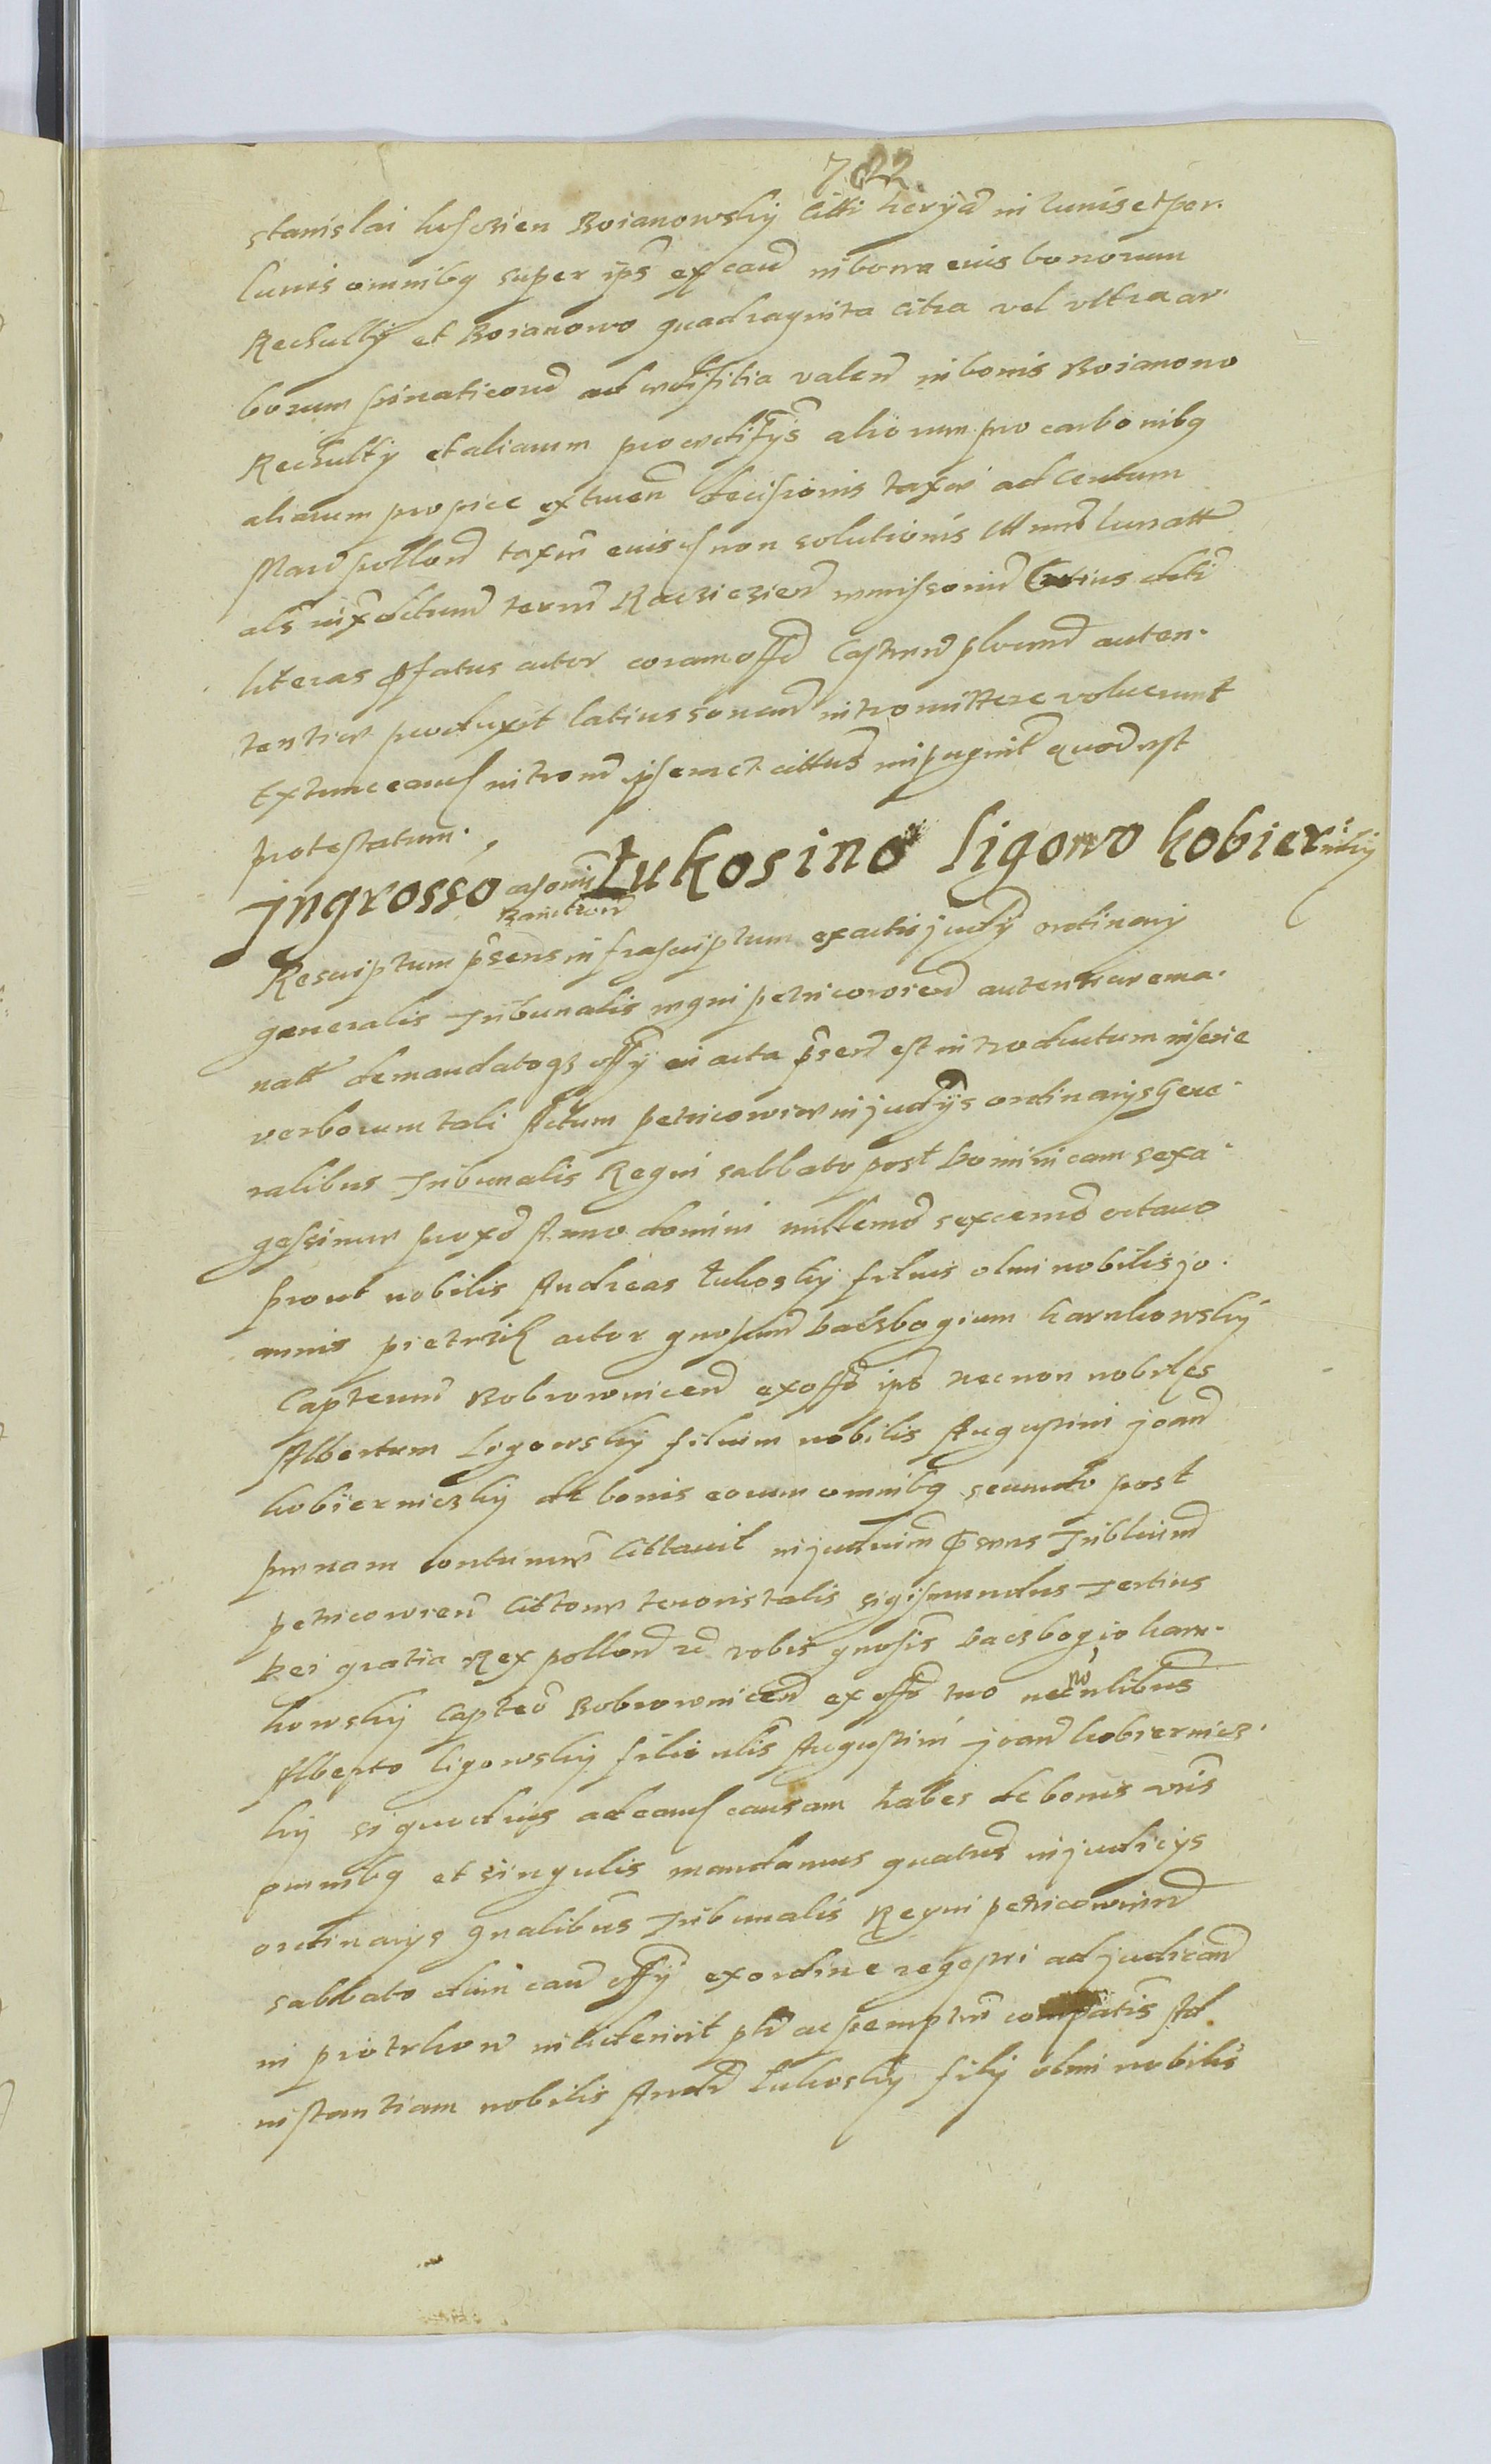 722.
stanislai Boianowsky citti in lunis et per.
lunis omnibq super ips ex caus in bona eius bonorum
Rechulky et Boianowo quadraginta citra vel vltra ar.
borum ad valen in bonis Boianowo
Rechulky et aliarum pro alio rum pro carbonibq
aliarum pro pice decisionis taxe ad centum
Marc pollon taxem eius non solutionis
als in terris Racziezien latius
literas pfatus actor coram offo Castren plocen auten.
tentice produxit latius sonan intromittere voluerunt
Extunc ean ipsemet cittus quod est
protestatum.
Ingrosso Łukosino Ligowo kobierniczky
Rescriptum psens infrascriptum ex actis judy ordinary
generalis Tribunalis regni petricowien autentice ema.
natt demandatoqz offy ad acta psen est introductum in serie
verborum tali Actum petricowie in judys ordinarys Gene.
ralibus Tribunalis Regni sabbato post Dominicam sexa.
gessimae prox Anno domini millemo sexcemo octavo
prout nobilis Andreas Łukosky filius olim nobilis jo.
annis pietrzik actor gnosum Daczbogium karnkowsky
Capteum Bobrownicen ex offo ipo necnon nobiles
Albertum Ligowsky filium nobilis Augustini joan
kobierniczky de bonis eorum omnibq secundo post
primam contumac Cittavit in judicium psens Tribluim
petricowien Cittone tenoris talis Sigismundus Tertius
Dei gratia Rex pollon rc vobis gnosis Daczbogio karn.
kowsky Capteo Bobrownicen ex offo tuo nec no nlibus
Alberto ligowsky filio nlis Augustini joan kobiernicz.
ky si quod ius ad eam causam habes de bonis vris
omnibq et singulis mandamus quatus in judicys
ordinarys gnalibus Tribunalis Regni petricowien
sabbato dum caus offy ex ordine regestri ad judican
in piotrkow inciderit plr ac peremptor compatis Ad
instantiam nobilis Andr Łukosky fily olim nobilis